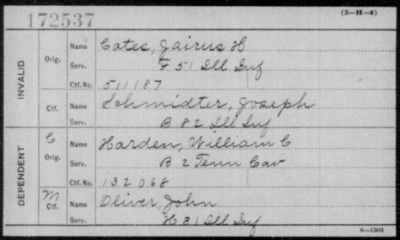 172537
(3-H-4)
INVALID
Orig. Name Cates, Jairus H
Serv. F 51 Ill Inf
Ctf. No. 511187
Ctf. Name Schmidter, Joseph
Serv. B 82 Ill Inf
DEPENDENT
C Orig. Name Harden, William C
Serv. B 2 Tenn Cav
Ctf. No. 132068
M Ctf. Name Oliver, John
Serv. H 31 Ill Inf